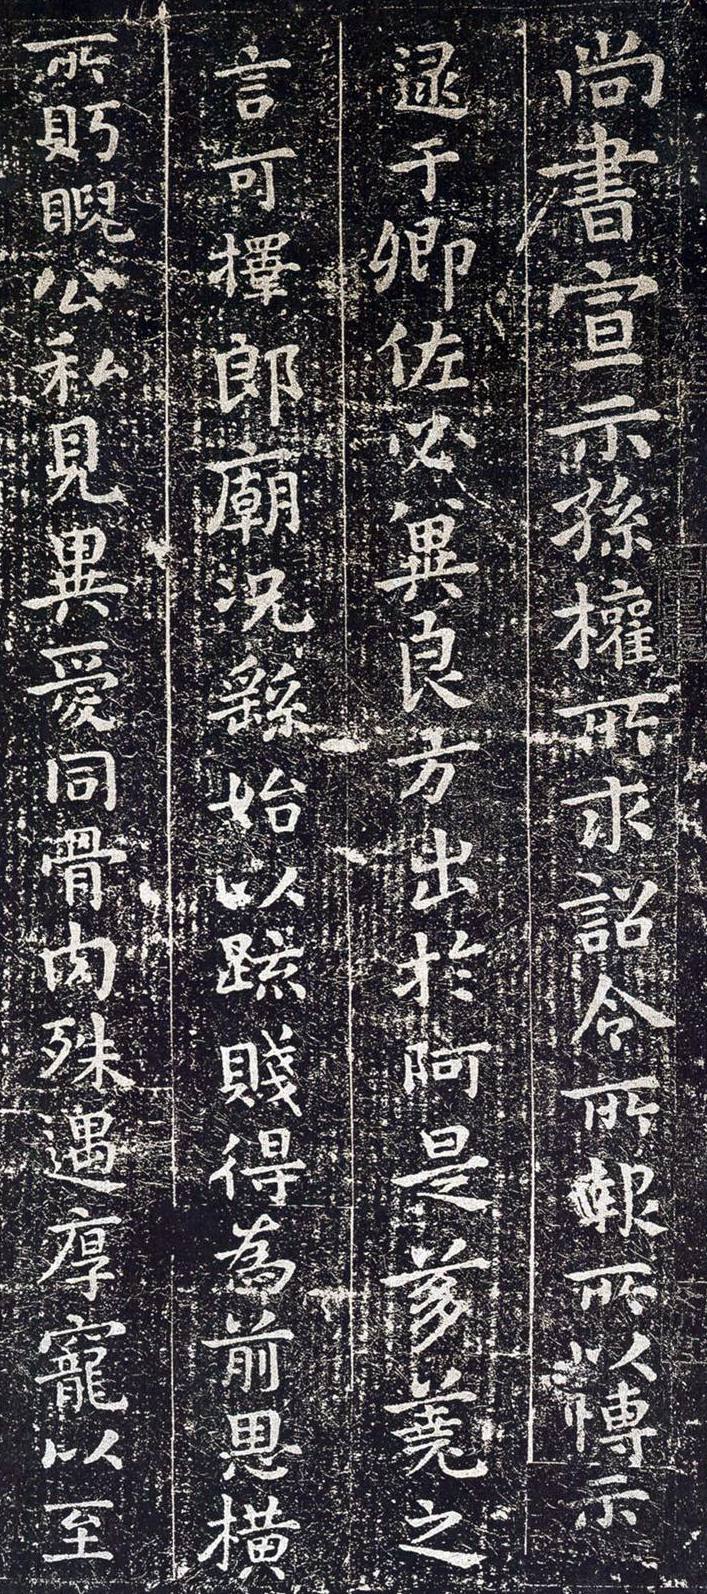 尚書宣示孫權所求詔令所報所以博示
逮于卿佐必冀良方出於阿是芻蕘之
言可擇郎廟況繇始以疏賤得為前恩橫
所盼睨公私見異愛同骨肉殊遇厚寵以至